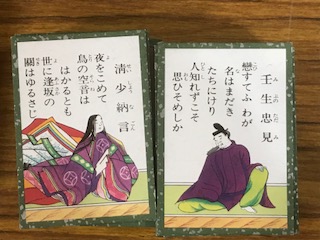 壬生忠見
戀すてふ わが
名はまだき
たちにけり
人知れずこそ
思ひそめしか
清少納言
夜をこめて
鳥の空音は
はかるとも
世に逢坂の
關はゆるさじ